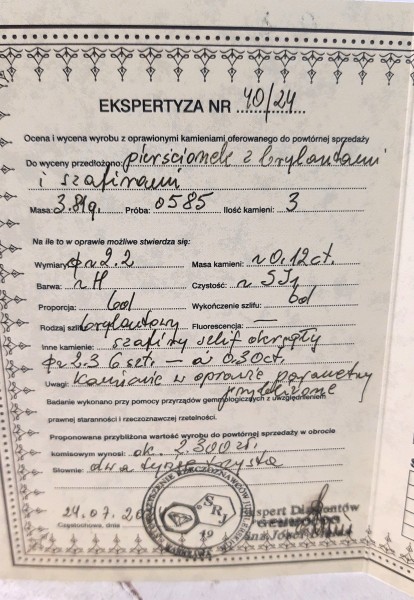 EKSPERTYZA NR 40/24
Ocena i wycena wyrobu z oprawionymi kamieniami oferowanego do powtórnej sprzedaży
Do wyceny przedłożono: pierścionek z brylantami
i szafirami
Masa: 3.81g. Próba: 0585 Ilość kamieni: 3
Na ile to w oprawie możliwe stwierdza się:
Wymiary: φ~2.2 Masa kamieni: ~0.12ct.
Barwa: ~H Czystość: ~SI1
Proporcja: bd Wykończenie szlifu: bd
Rodzaj szlifu: brylantowy Fluorescencja: —
Inne kamienie: szafiry szlif okrągły
φ~2.3 6szt. — ~0.30ct.
Uwagi: Kamienie w oprawie parametry
przybliżone
Badanie wykonano przy pomocy przyrządów gemmologicznych z uwzględnieniem
prawnej staranności i rzeczoznawczej rzetelności.
Proponowana przybliżona wartość wyrobu do powtórnej sprzedaży w obrocie
komisowym wynosi: ok. 2.300 zł.
Słownie: dwa tysiące trzysta
24.07.
Częstochowa, dnia
SRJ
19
Ekspert Diamentów
Józef